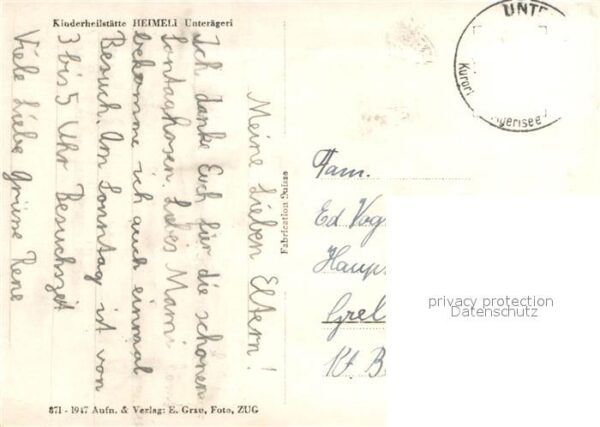 Kinderheilstätte HEIMELI Unterägeri
Meine Lieben Eltern!
Ich danke Euch für die schönen
Sontaghosen. Liebes Mami
bekomme ich auch einmal
Besuch. Am Sonntag ist von
3 bis 5 Uhr Besuchszeit
Viele Liebe Grüsse Rene
Fabrication Suisse
871 - 1947 Aufn. & Verlag: E. Grau, Foto, ZUG
UNTE
Kurort
gerisee
Fam.
Ed Vog
Haup
Grel
Kt. B
privacy protection
Datenschutz